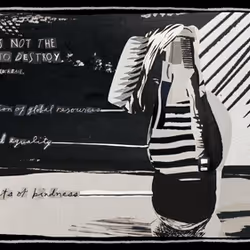 IS NOT THE
TO DESTROY.
ion of global resources
equality
of kindness